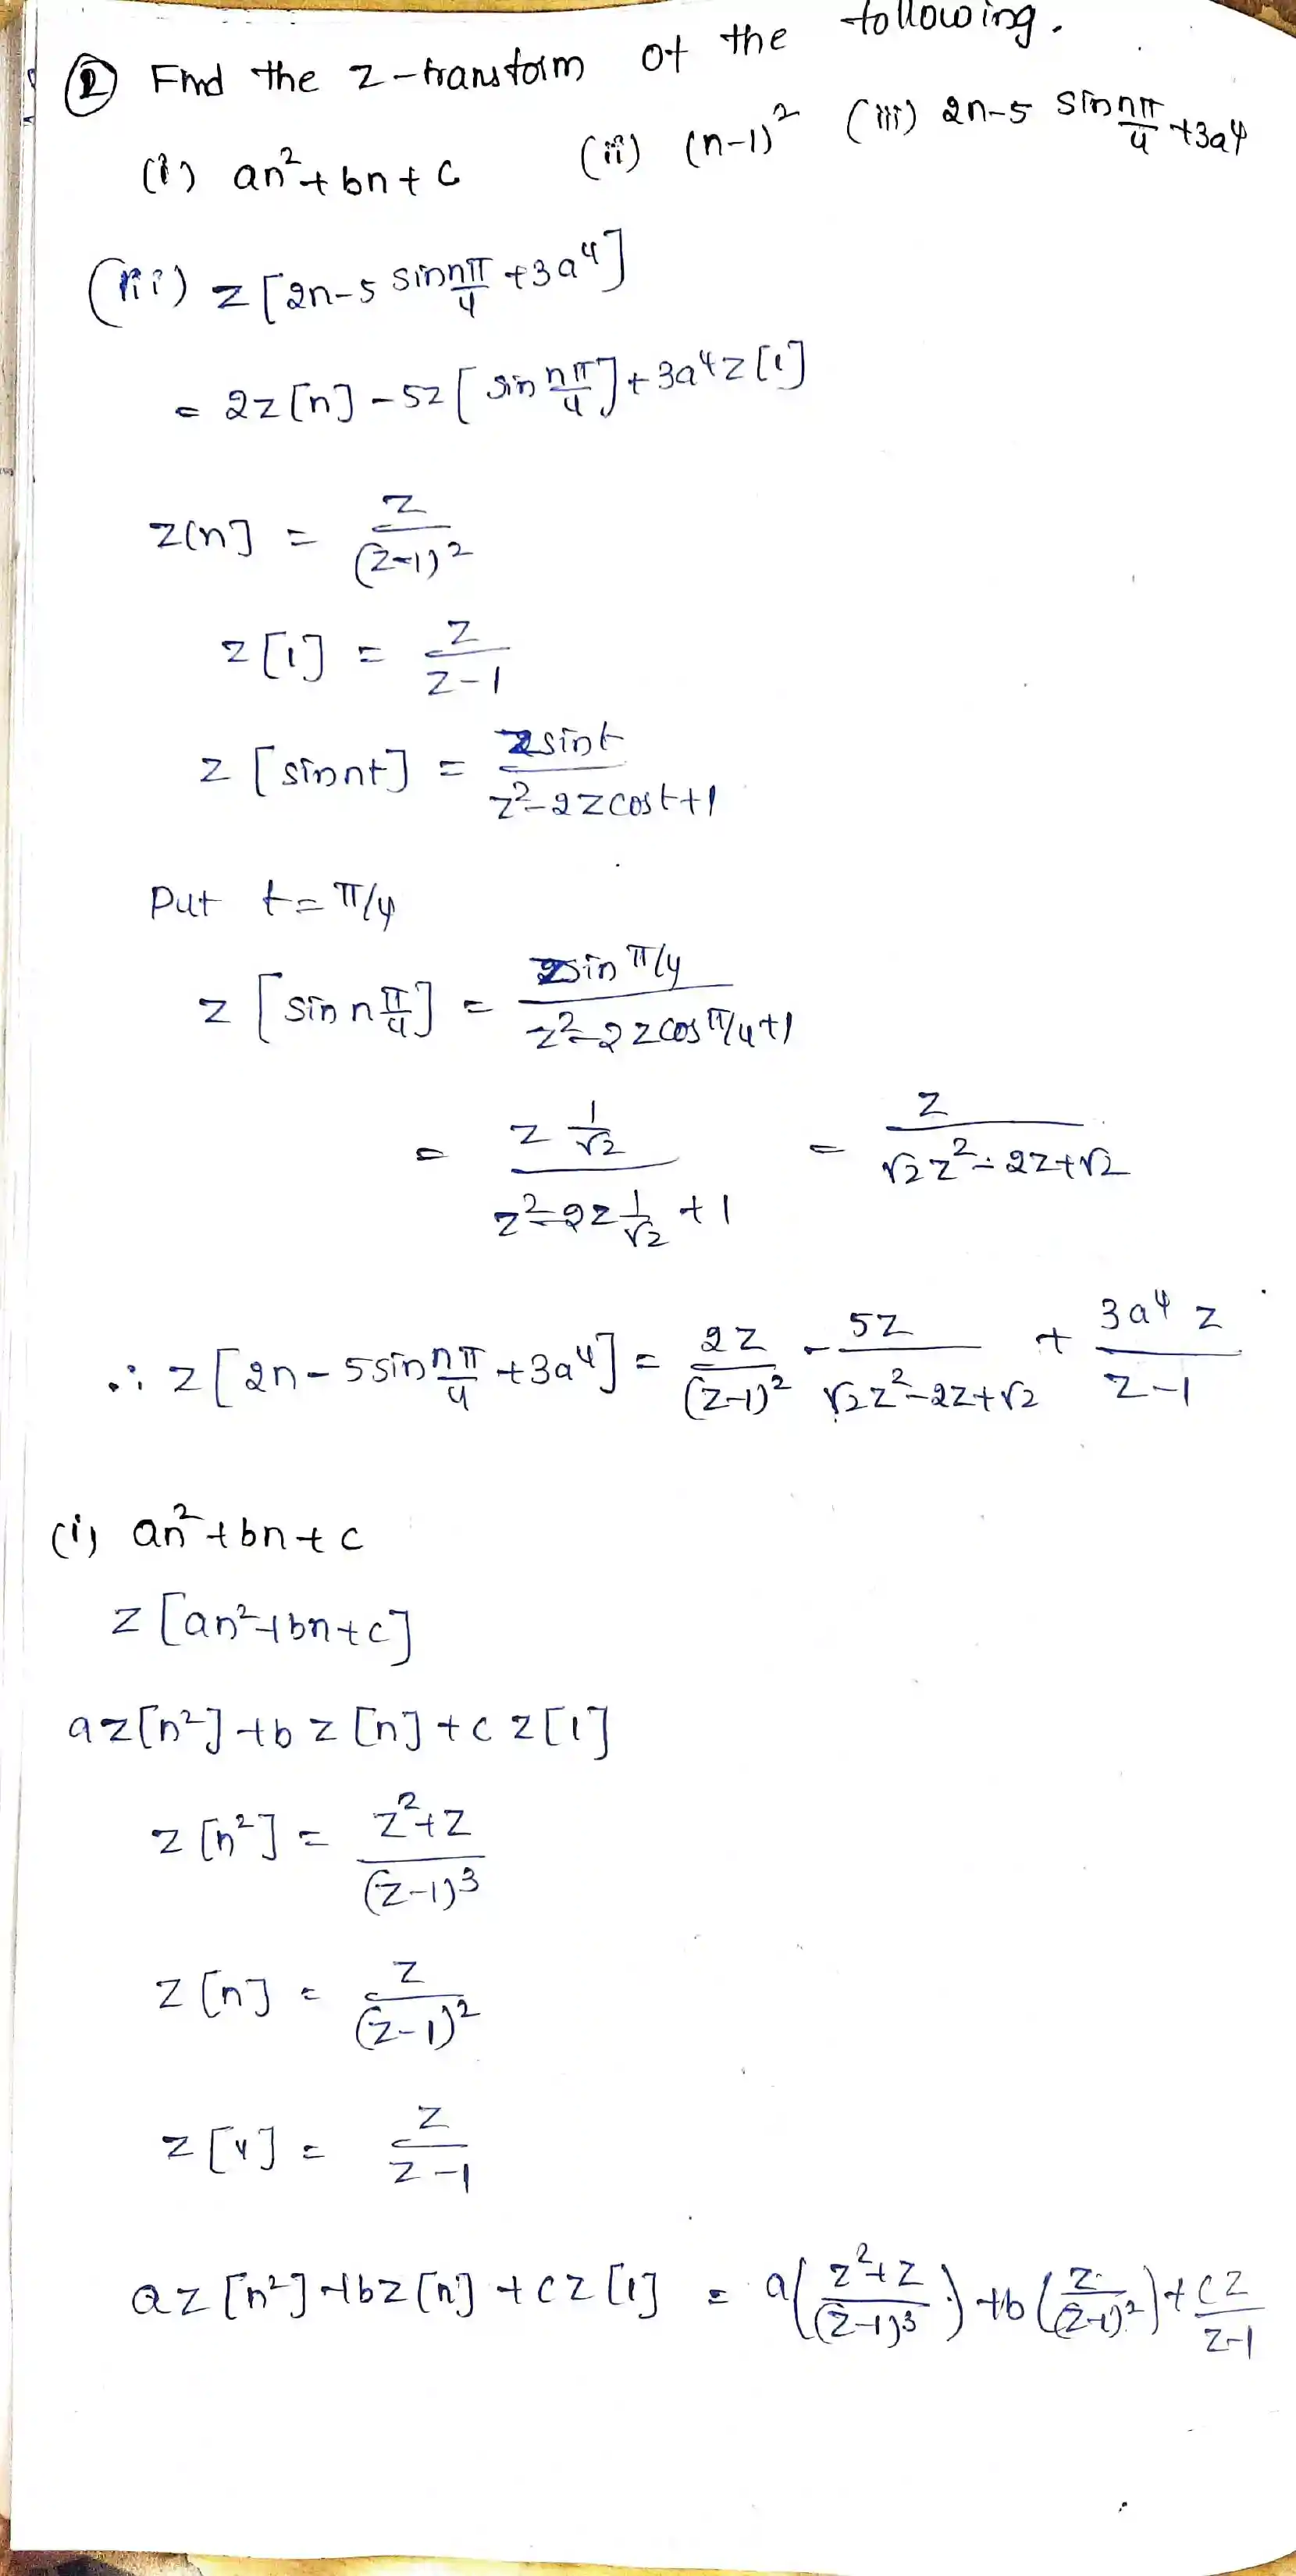 ② Find the z-transform of the following.
(i) an²+bn+c (ii) (n-1)² (iii) 2n-5 sin nπ/4 +3a⁴
(iii) z[2n-5 sin nπ/4 +3a⁴]
= 2z[n] -5z[sin nπ/4]+3a⁴z[1]
z(n] = z/(z-1)²
z[1] = z/z-1
z[sin nt] = z sint/z²-2z cost+1
Put t=π/4
z[sin n π/4] = z sin π/4/z²-2z cos π/4+1
= z 1/√2/z²-2z 1/√2 +1 = z/√2z²-2z+√2
∴ z[2n-5sin nπ/4 +3a⁴] = 2z/(z-1)² - 5z/√2z²-2z+√2 + 3a⁴z/z-1
(i) an²+bn+c
z[an²+bn+c]
az[n²]+bz[n]+cz[1]
z[n²] = z²+z/(z-1)³
z[n] = z/(z-1)²
z[4] = z/z-1
az[n²]+bz[n]+cz[1] = a(z²+z/(z-1)³)+b(z/(z-1)²)+cz/z-1